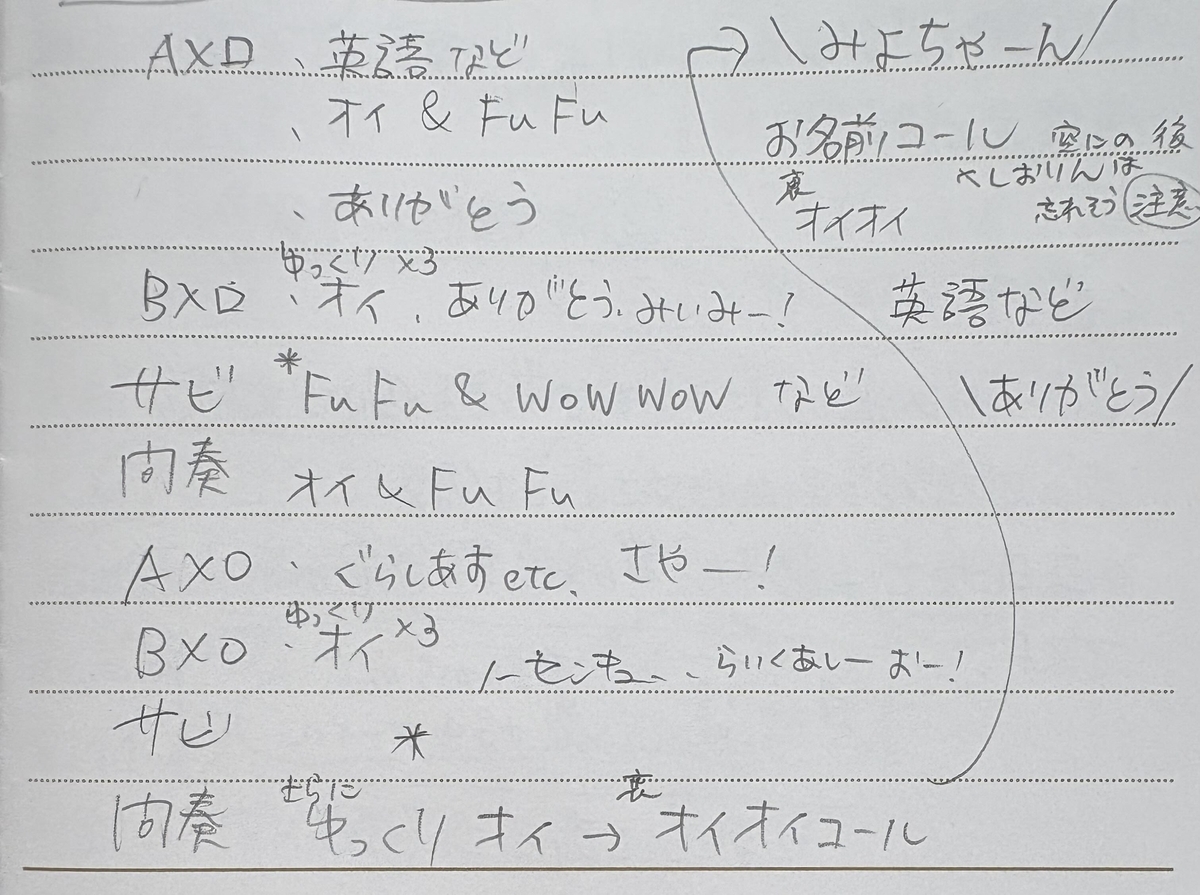 Aメロ 、英語など
、オイ & FuFu
、ありがとう
ゆっくり ×3
Bメロ 、オイ、ありがとう、みいみー!
サビ *FuFu & WOW WOW など
間奏 オイ & Fu Fu
Aメロ 、ぐらしあす etc、さやー!
ゆっくり
Bメロ 、オイ ×3 ノーセンキュー、らいくあしーおー!
サビ *
さらに 裏
間奏 ゆっくり オイ → オイオイコール
→ \みよちゃーん/
お名前コール 空にの後
×しおりんは
忘れそう 注意
裏
オイオイ
英語など
\ありがとう/